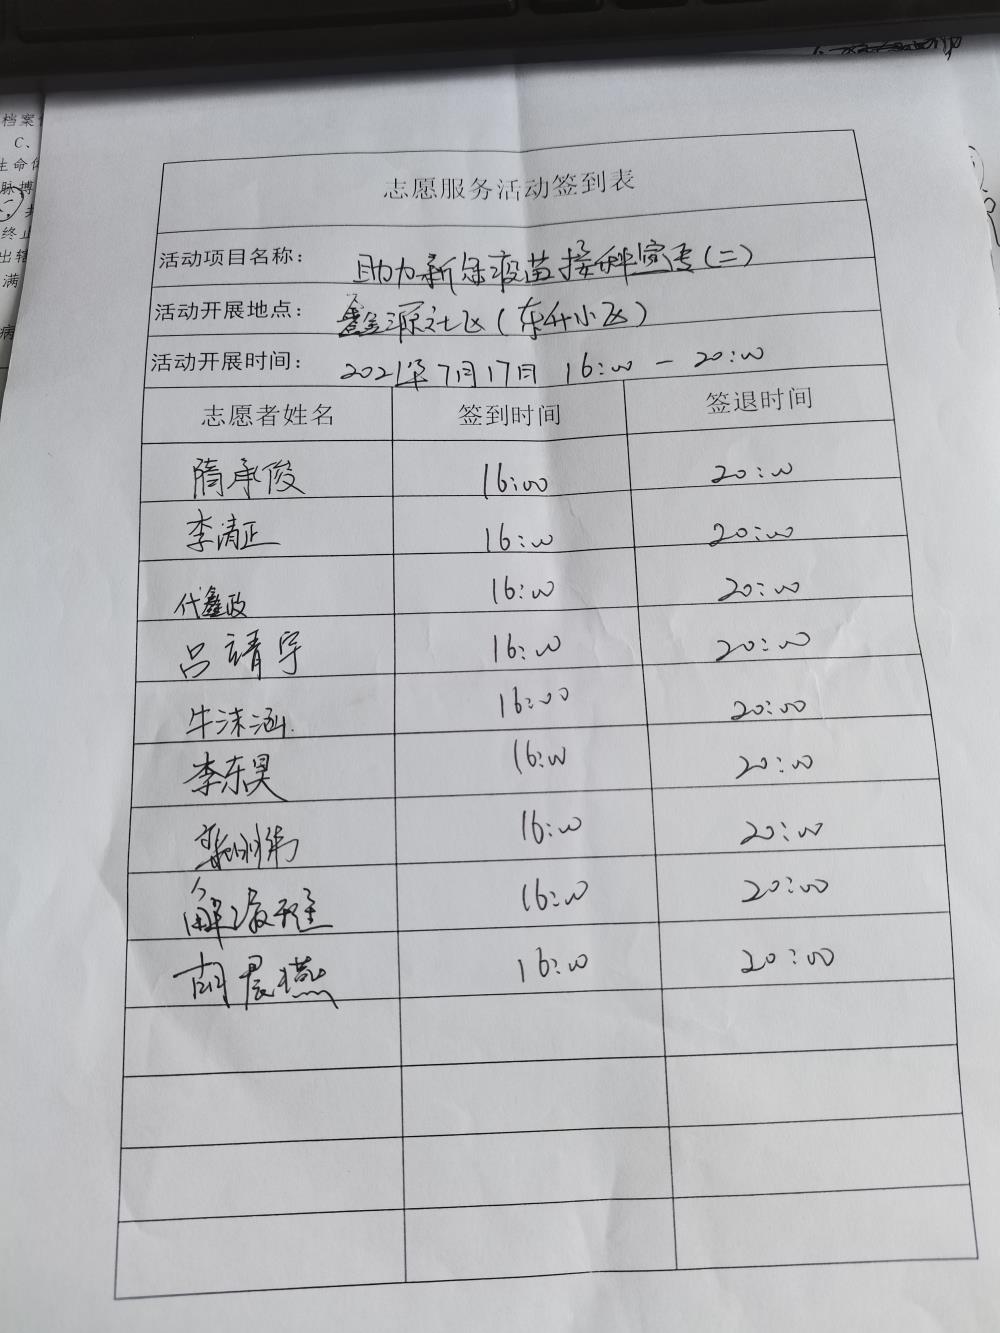 档案
C、
脉搏
终止
满
病
志愿服务活动签到表
活动项目名称： 助力新冠疫苗接种宣传(二)
活动开展地点： 鑫源社区(东升小区)
活动开展时间： 2021年7月17日 16:00 - 20:00
志愿者姓名 签到时间 签退时间
隋承俊 16:00 20:00
李清正 16:00 20:00
代鑫政 16:00 20:00
吕靖宇 16:00 20:00
牛沫涵 16:00 20:00
李东昊 16:00 20:00
16:00 20:00
解 16:00 20:00
胡晨燕 16:00 20:00